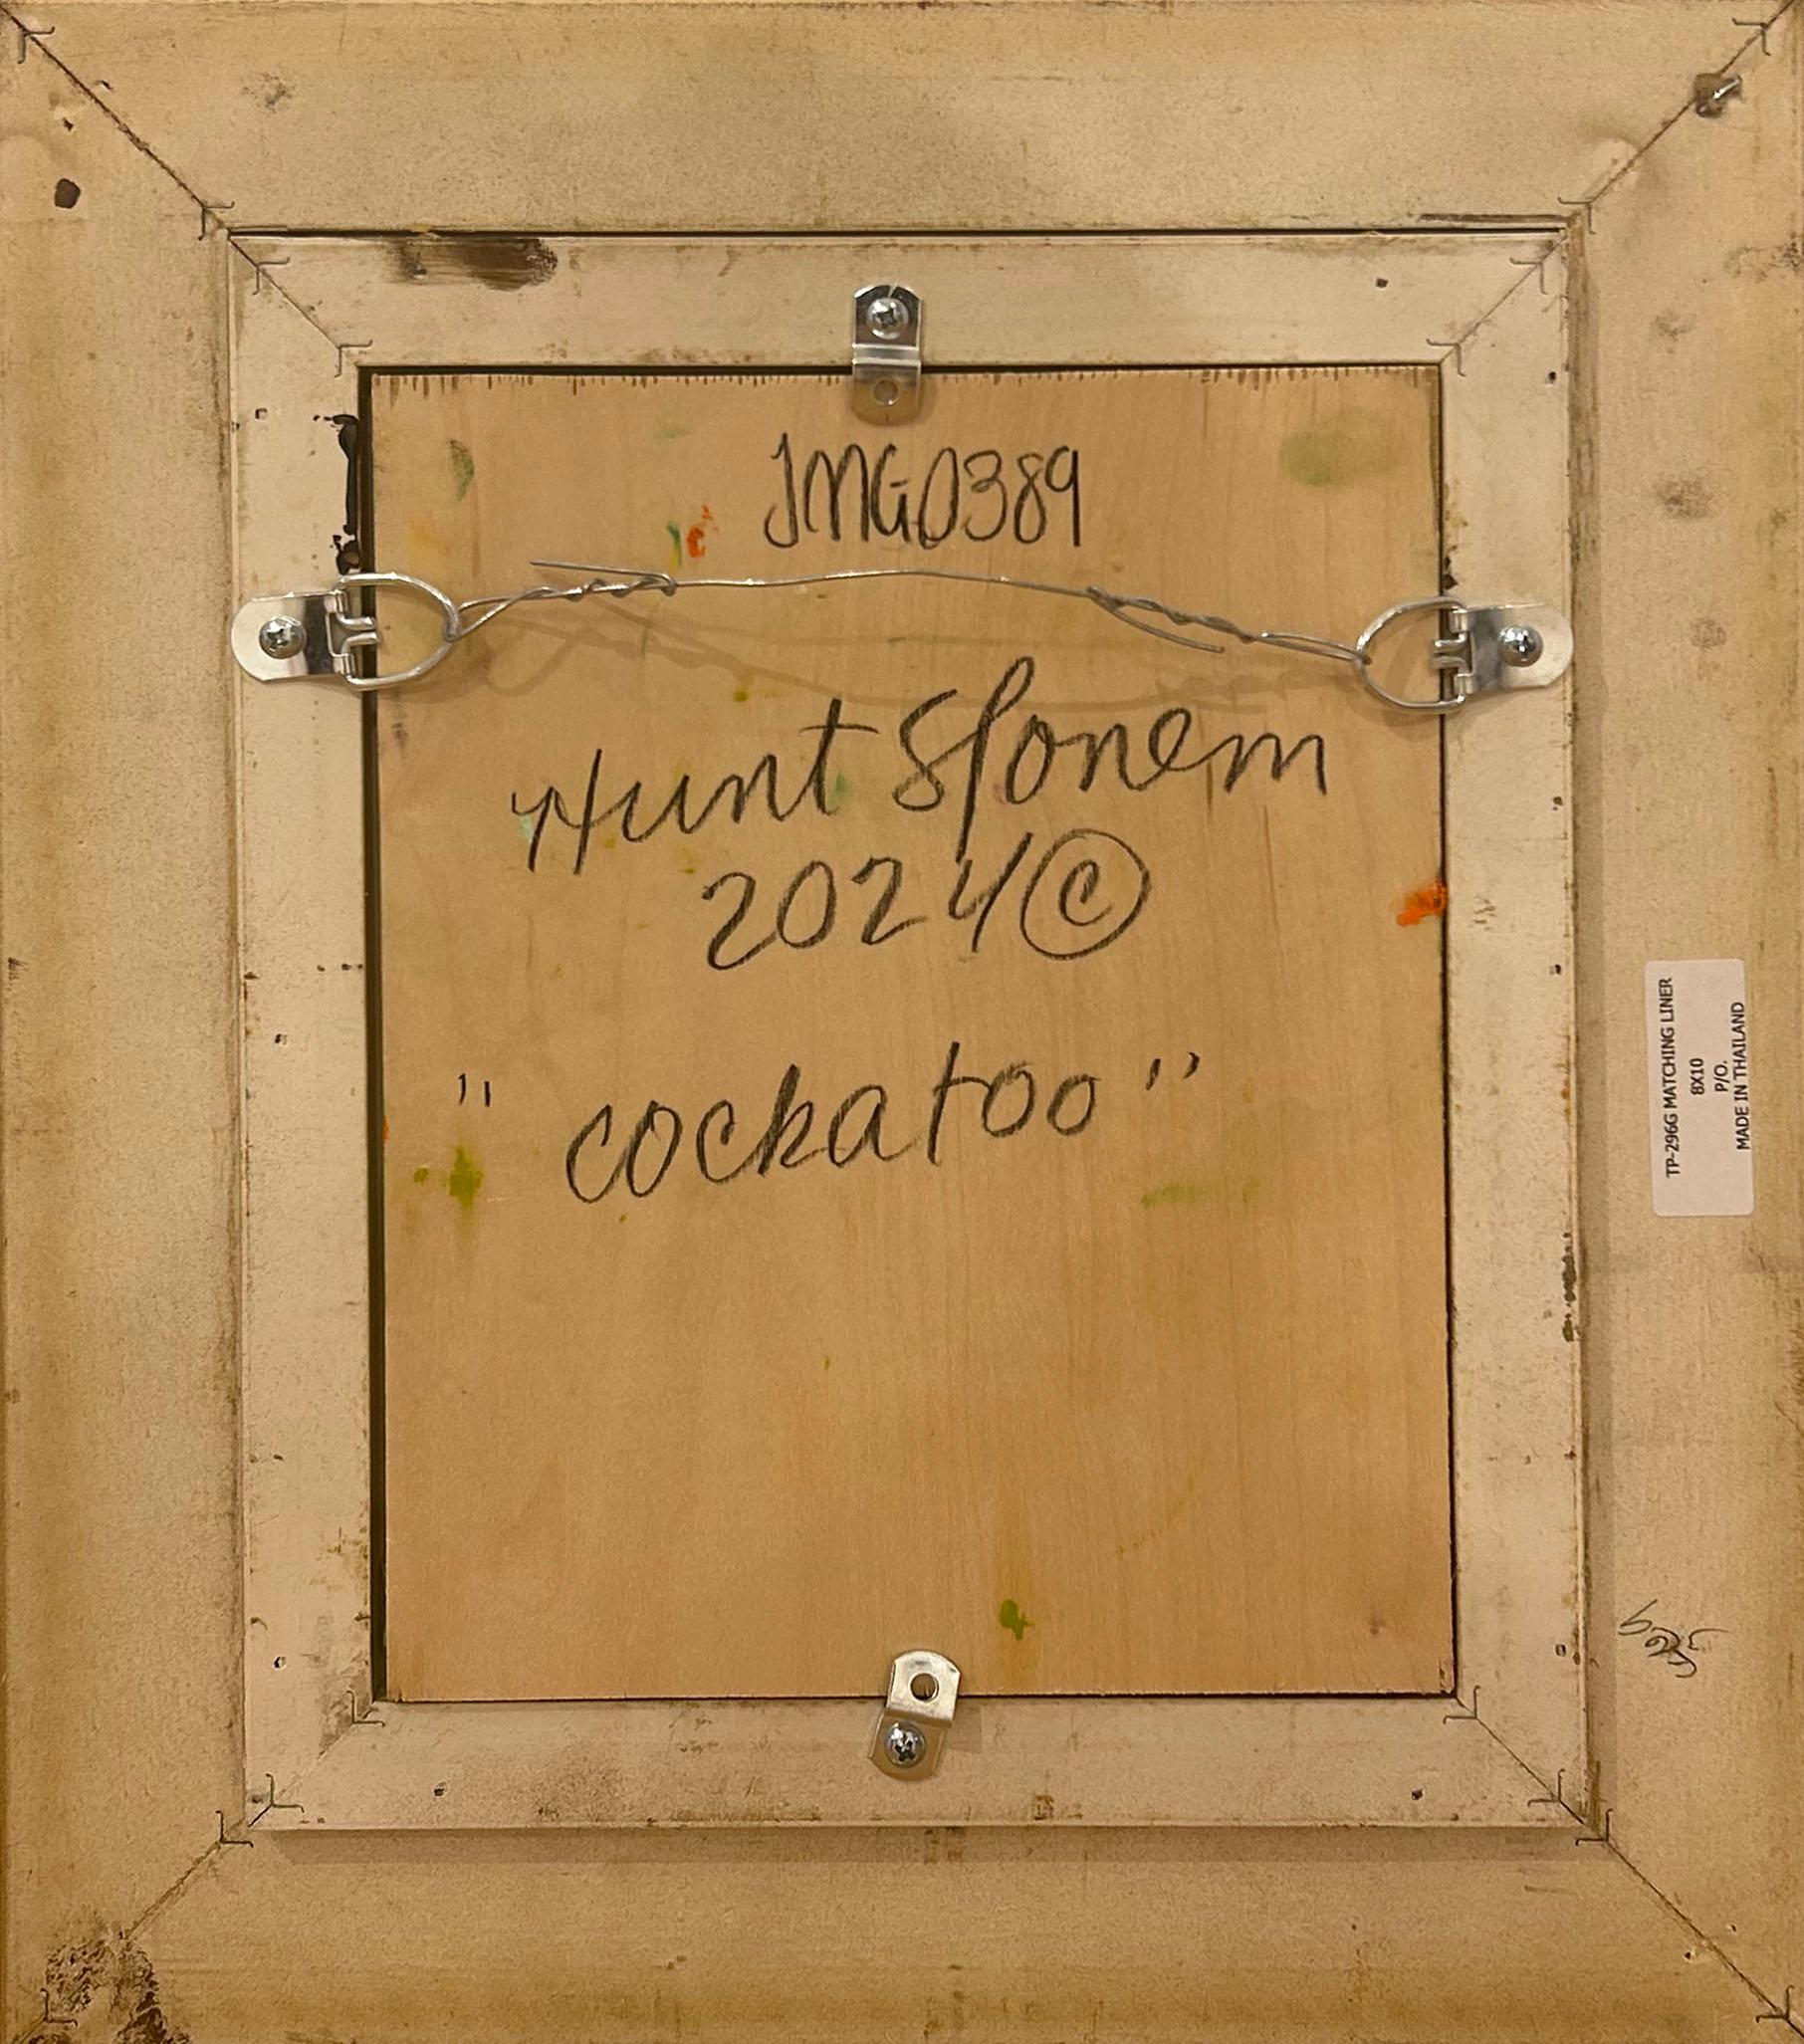 JMG0389
Hunt Slonem
2024 ©
"cockatoo"
TP-296G MATCHING LINER
8X10
P/O.
MADE IN THAILAND